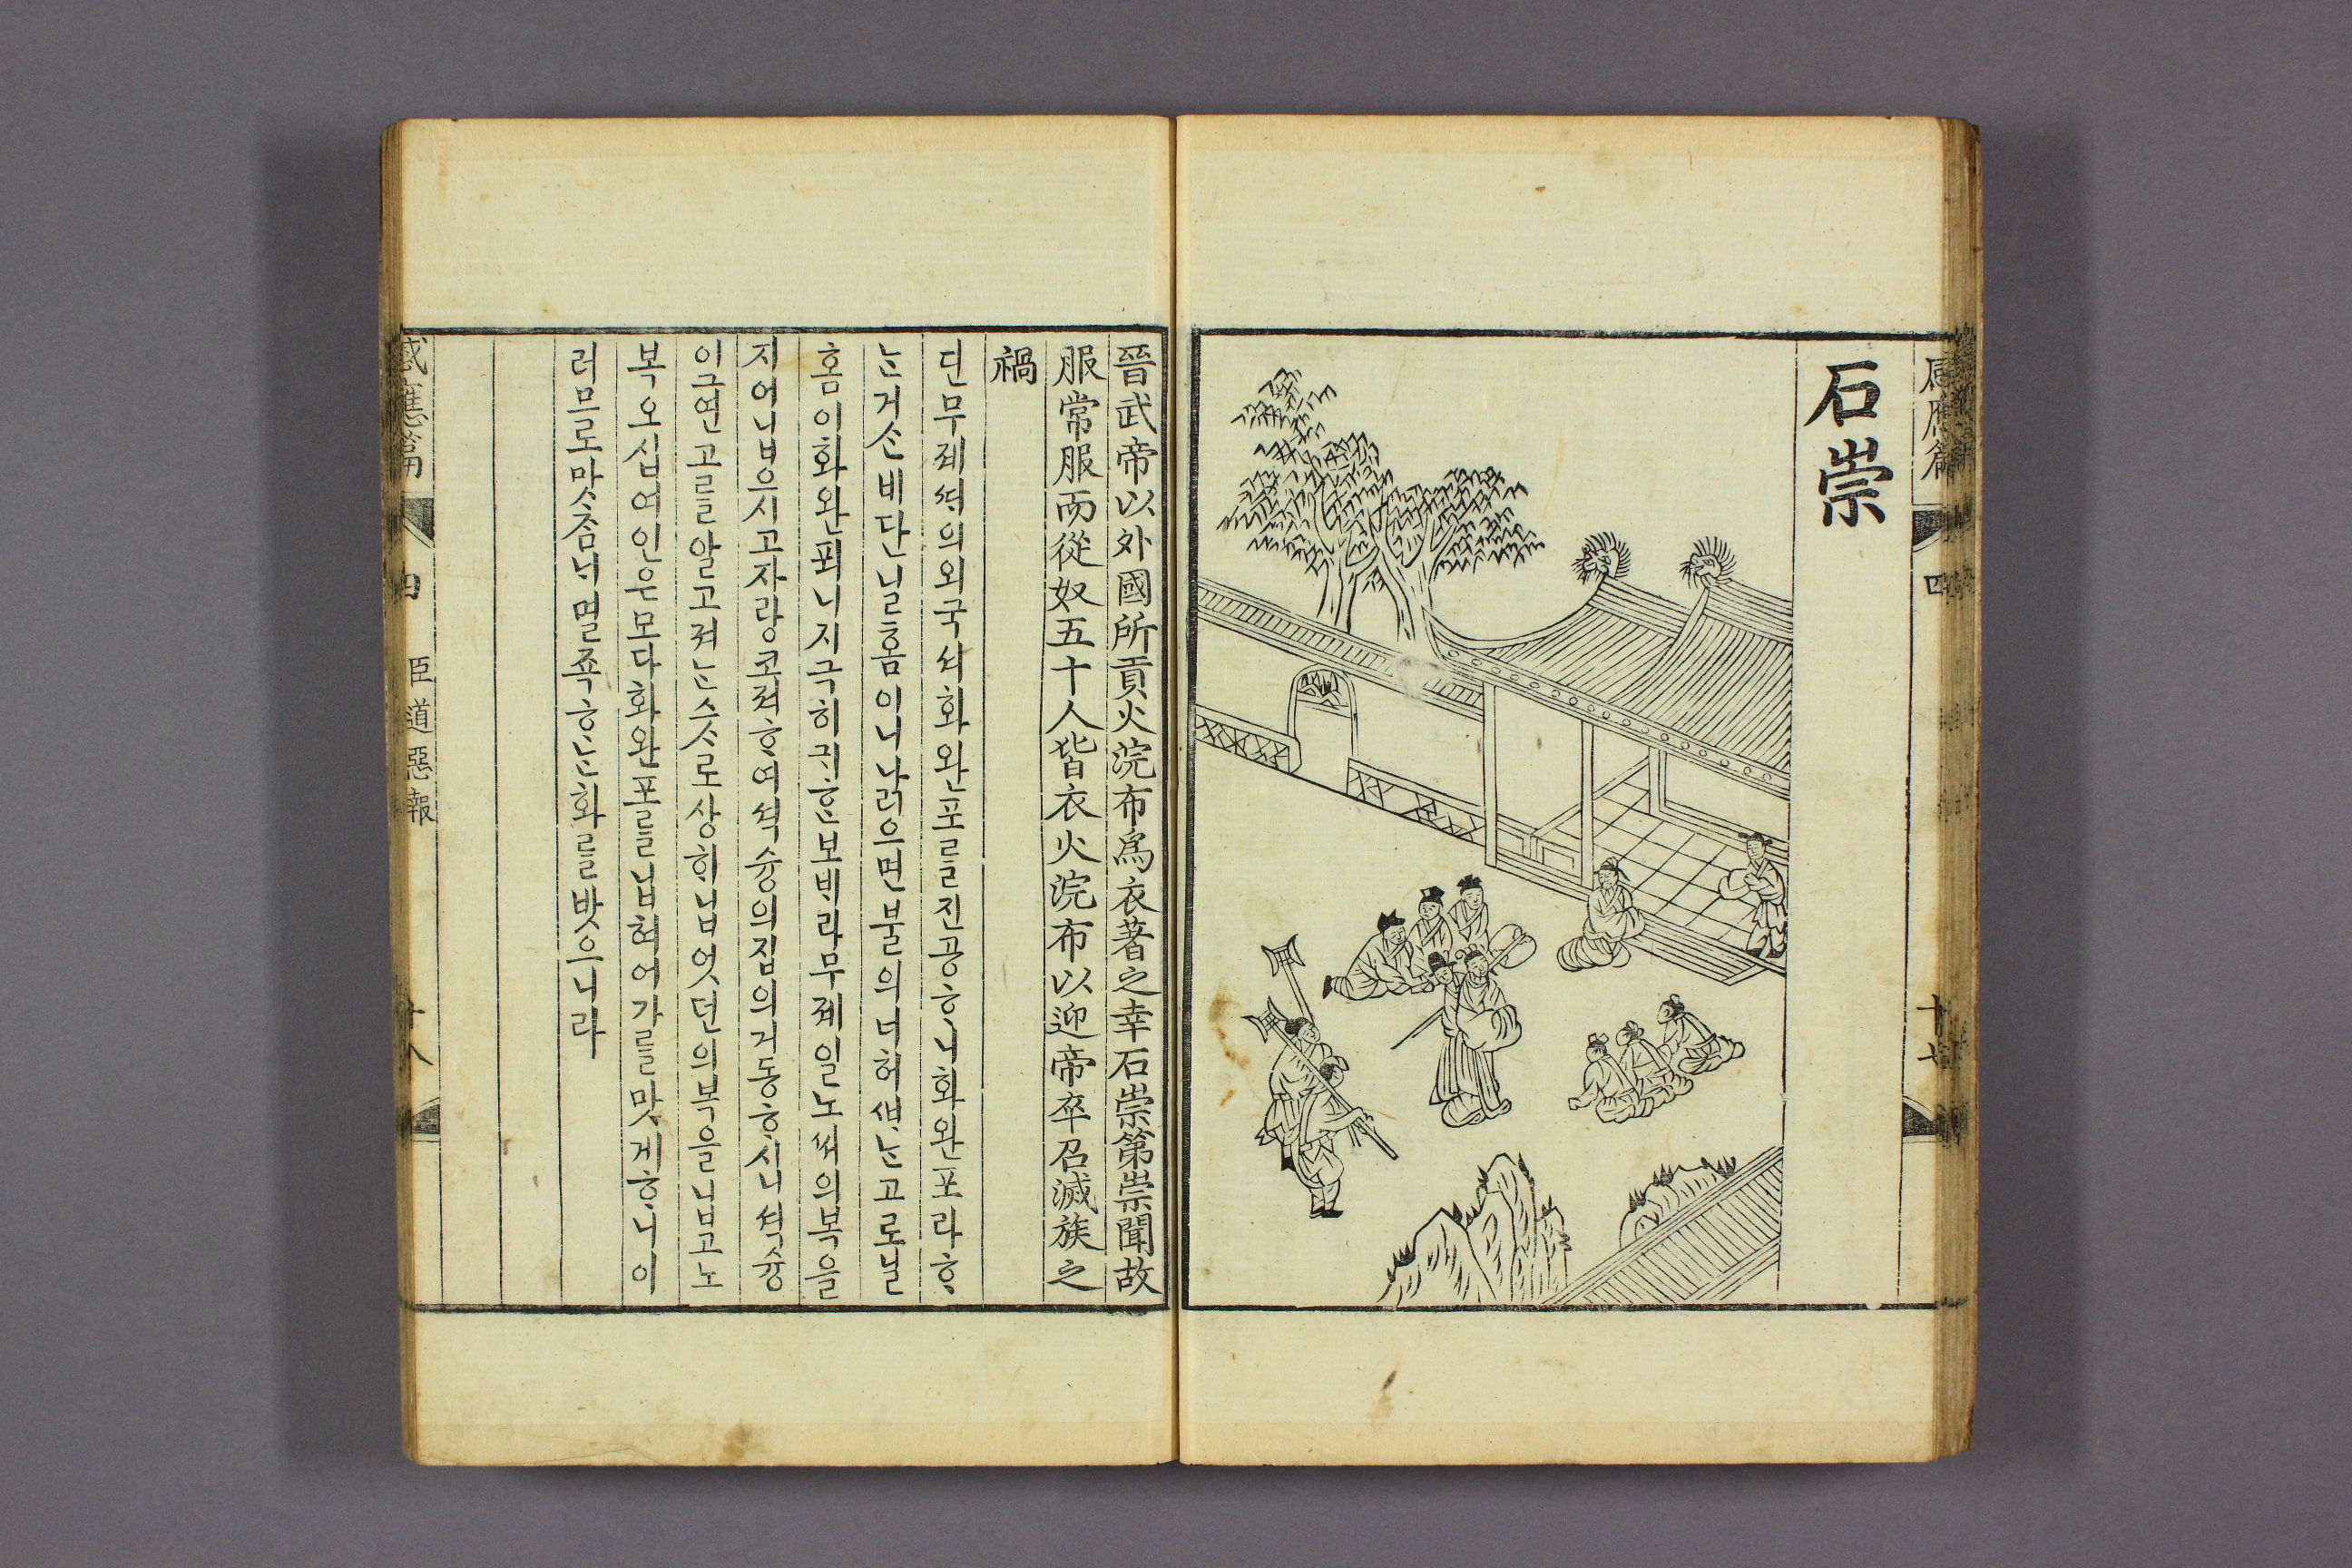 石崇
四
十七
晉武帝以外國所貢火浣布爲衣著之幸石崇第崇聞故
服常服而從奴五十人皆衣火浣布以迎帝卒召滅族之
禍
딘무졔셔의외국셔화완포를진공ᄒᆞ니화완포라ᄒᆞ
ᄂᆞᆫ거ᄉᆞᆫ비단닐홈이니나라으면불의더허ᄲᆞᄂᆞᆫ고로닐
홈이화완푀니지극히귀ᄒᆞᆫ보ᄇᆡ라무졔일노ᄡᅥ의복을
지어닙으시고자랑코져ᄒᆞ여셕슝의집의거동ᄒᆞ시니셕슝
이그연고를알고져는슷스로샹ᄒᆡ닙엇던의복을닙고노
복오십여인은모다화완포를닙혀어가를맛게ᄒᆞ니이
러므로마ᄎᆞᆷᄂᆡ멸죡ᄒᆞᄂᆞᆫ화를밧으니라
感應篇
四
臣道惡報
十八